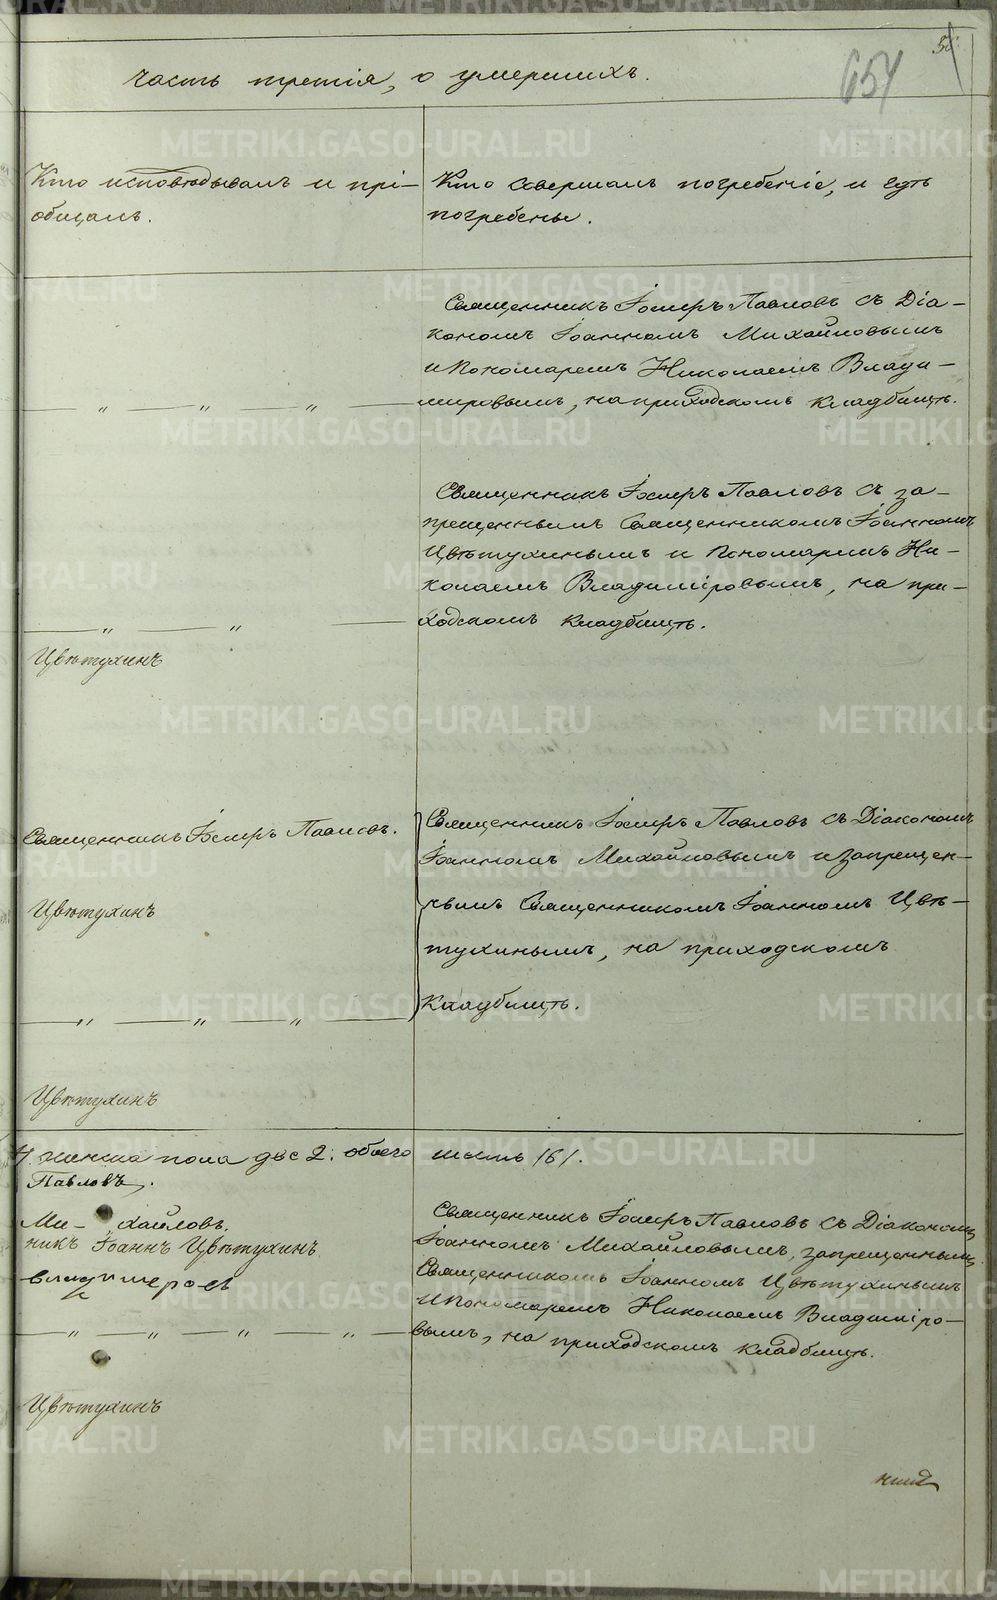 54
654
Часть третія, о умершихъ.
Кто исповѣдывалъ и прі-
общалъ.
Кто совершалъ погребеніе, и гдѣ
погребены.
Священникъ Іосифъ Павловъ съ Діа-
кономъ Іоанномъ Михайловымъ
и Пономаремъ Николаемъ Влади-
мировымъ, на приходскомъ кладбищѣ.
Священникъ Іосифъ Павловъ съ за-
прещеннымъ Священникомъ Іоанномъ
Цвѣтухинымъ и Пономаремъ Ни-
колаемъ Владиміровымъ, на при-
ходскомъ кладбищѣ.
Цвѣтухинъ
Священникъ Іосифъ Павловъ.
Священникъ Іосифъ Павловъ съ Діакономъ
Іоанномъ Михайловымъ и запрещен-
нымъ Священникомъ Іоанномъ Цвѣ-
тухинымъ, на приходскомъ
кладбищѣ.
Цвѣтухинъ
Цвѣтухинъ
женска пола две 2. обоего шесть /6/.
Павловъ.
Ми- хайловъ.
никъ Іоаннъ Цвѣтухинъ.
владимеровъ
Священникъ Іосифъ Павловъ съ Діакономъ
Іоанномъ Михайловымъ, запрещеннымъ
Священникомъ Іоанномъ Цвѣтухинымъ
и Пономаремъ Николаемъ Владиміро-
вымъ, на приходскомъ кладбищѣ.
Цвѣтухинъ
METRIKI.GASO-URAL.RU